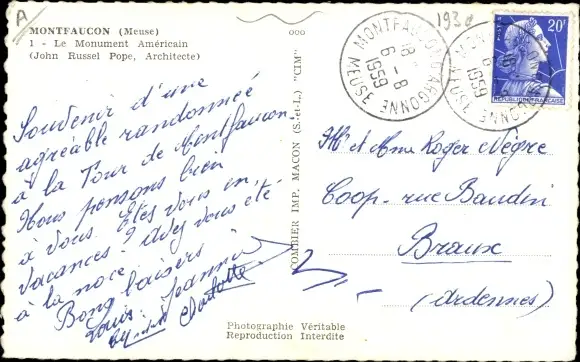 A
MONTFAUCON (Meuse)
1 - Le Monument Américain
(John Russel Pope, Architecte)
Souvenir d'une
agréable randonnée
à la Tour de Montfaucon.
Nous pensons bien
à vous. Êtes vous en
vacances ? Avez vous été
à la noce ?
Bons baisers
Louis Jeannine
COMBIER IMP. MACON (S.-et-L.) "CIM"
MONTFAUCON D'ARGONNE
18
6 - 8
1959
MEUSE
20F
REPUBLIQUE FRANÇAISE
Mr et Mme Roger Nègre
Coop. rue Baudin
Braux
(Ardennes)
Photographie Véritable
Reproduction Interdite